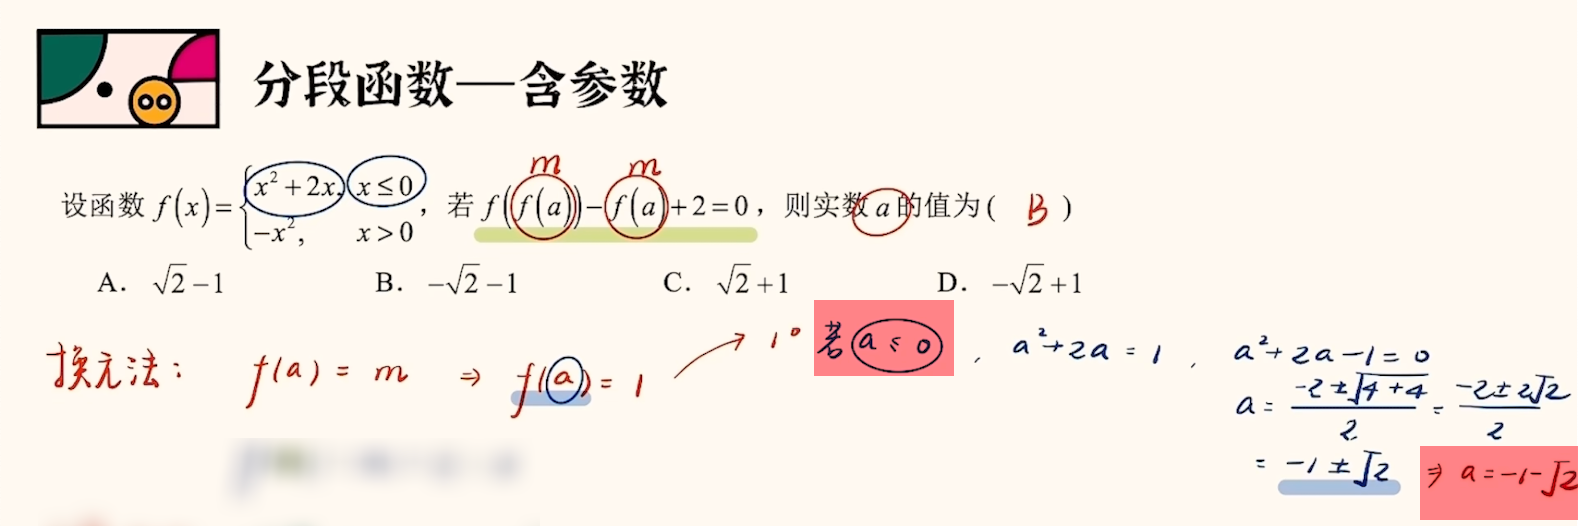 分段函数—含参数
m m
设函数 f(x)={x²+2x, x≤0, -x², x>0, 若 f(f(a))-f(a)+2=0, 则实数 a 的值为( B )
A. √2-1 B. -√2-1 C. √2+1 D. -√2+1
换元法: f(a) = m ⇒ f(a) = 1 → 1° 若 a ≤ 0 , a²+2a = 1 , a²+2a-1=0
a = (-2±√(4+4))/2 = (-2±2√2)/2
= -1±√2 ⇒ a=-1-√2